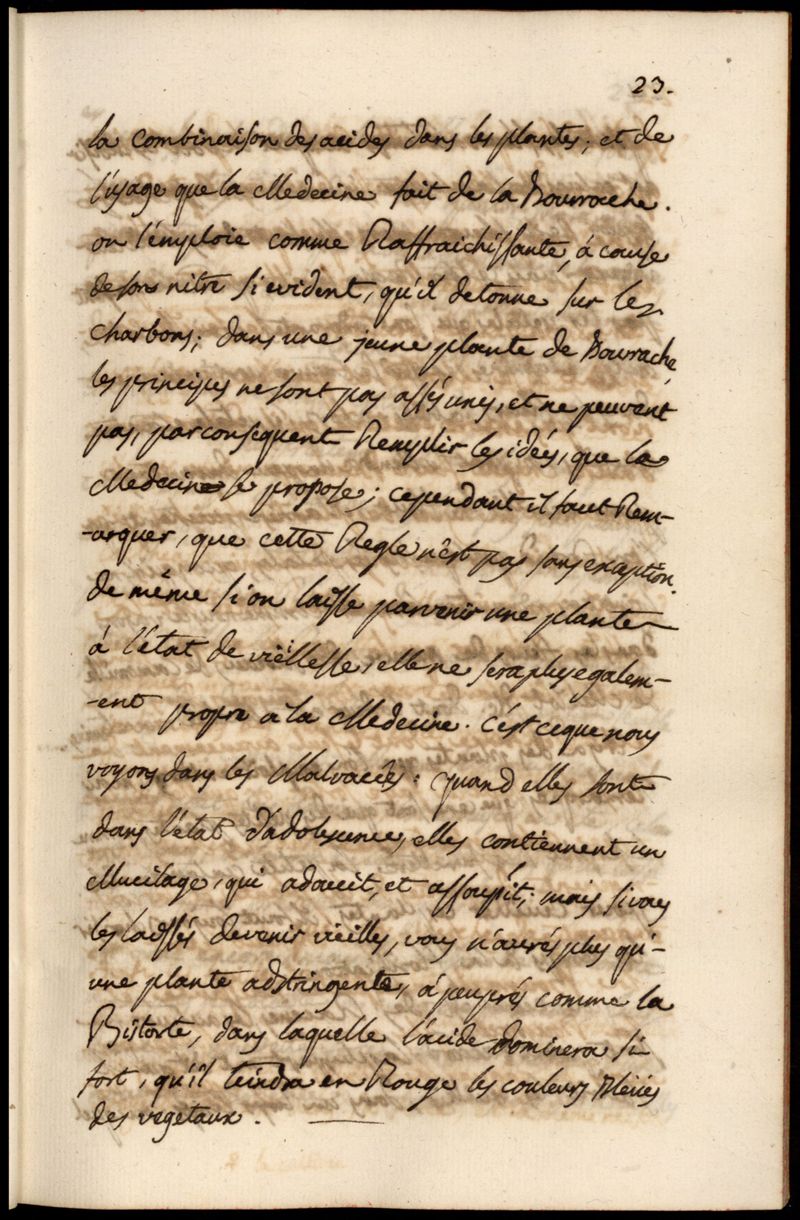 23.
la combinaison des acides dans les plantes; et de
l'usage que la Medecine fait de la Bourrache.
on l'émploie comme Raffraichissante, á cause
de son nitre si evident, qu'il detonne sur les
charbons; dans une jeune plante de Bourrache,
les principes ne sont pas assés unis, et ne peuvent
pas, par consequent Remplir les idées, que la
Medecine se propose; cependant il faut Rem-
-arquer, que cette Regle n'est pas sans exception.
de même si on laisse parvenir une plante
á l'état de viellesse, elle ne sera plus egalem-
-ent propre a la Medecine. c'est ce que nous
voyons dans les Malvacées: quand elles sont
dans l'état d'adolescence, elles contiennent un
Mucilage, qui adoucit, et assoupit; mais si vous
les laissés devenir vieilles, vous n'aurés plus qu'-
une plante adstringente, á peuprés comme la
Bistorte, dans laquelle l'acide dominera si
fort, qu'il teindra en Rouge les couleurs Bleües
des vegetaux.